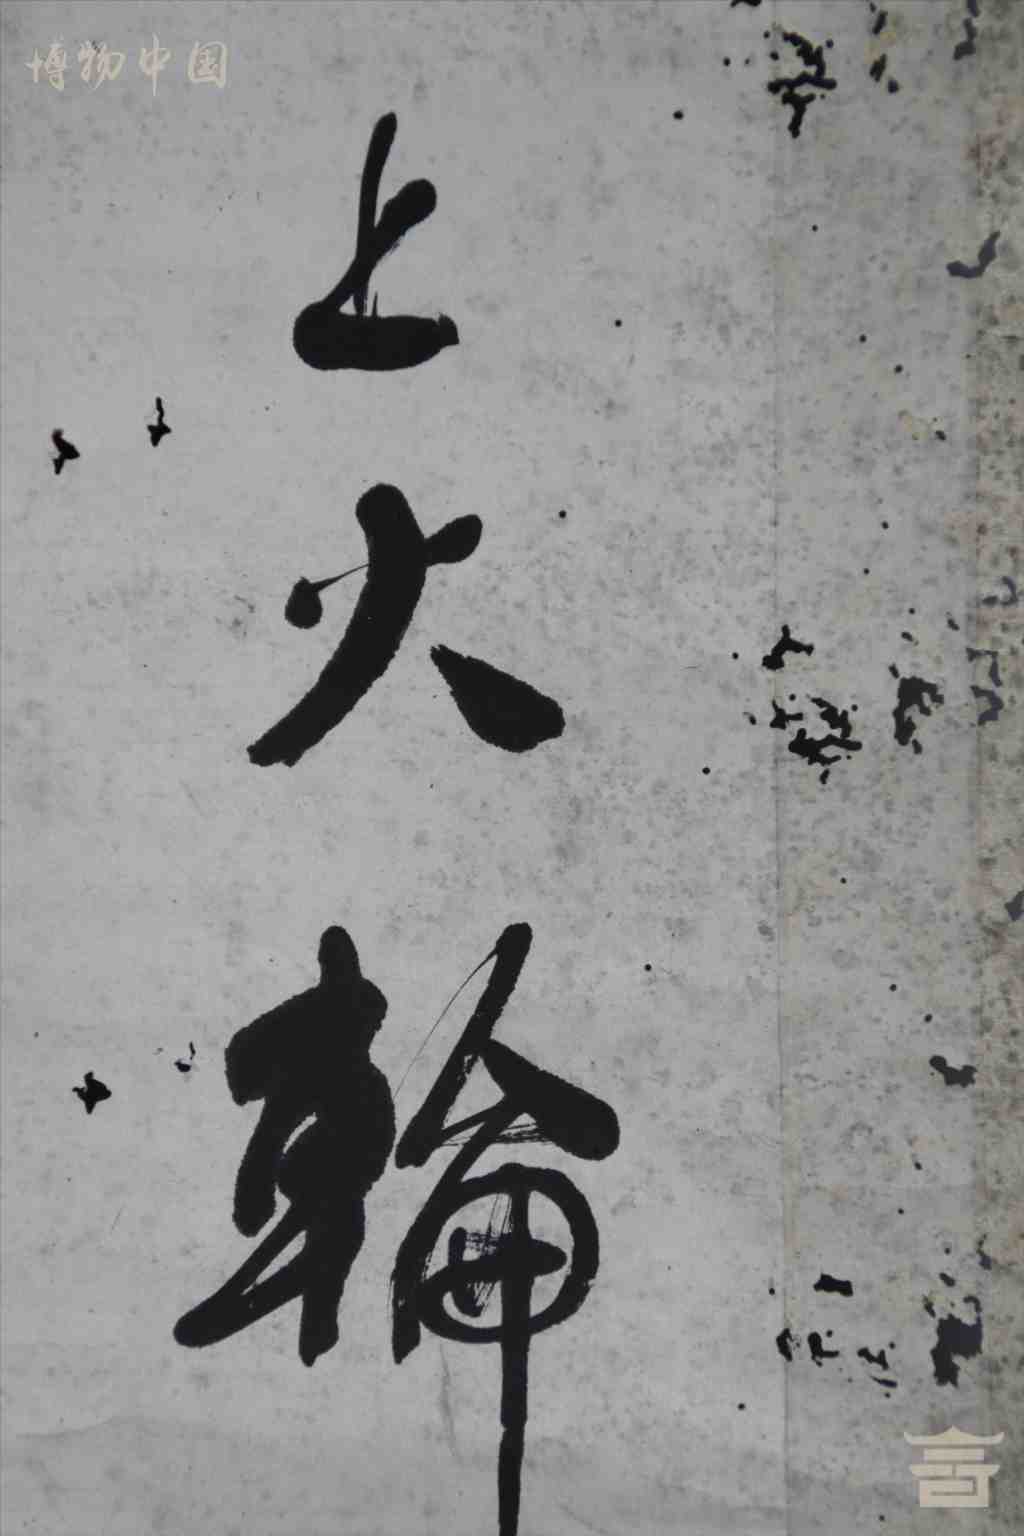 博物中国
上火輪